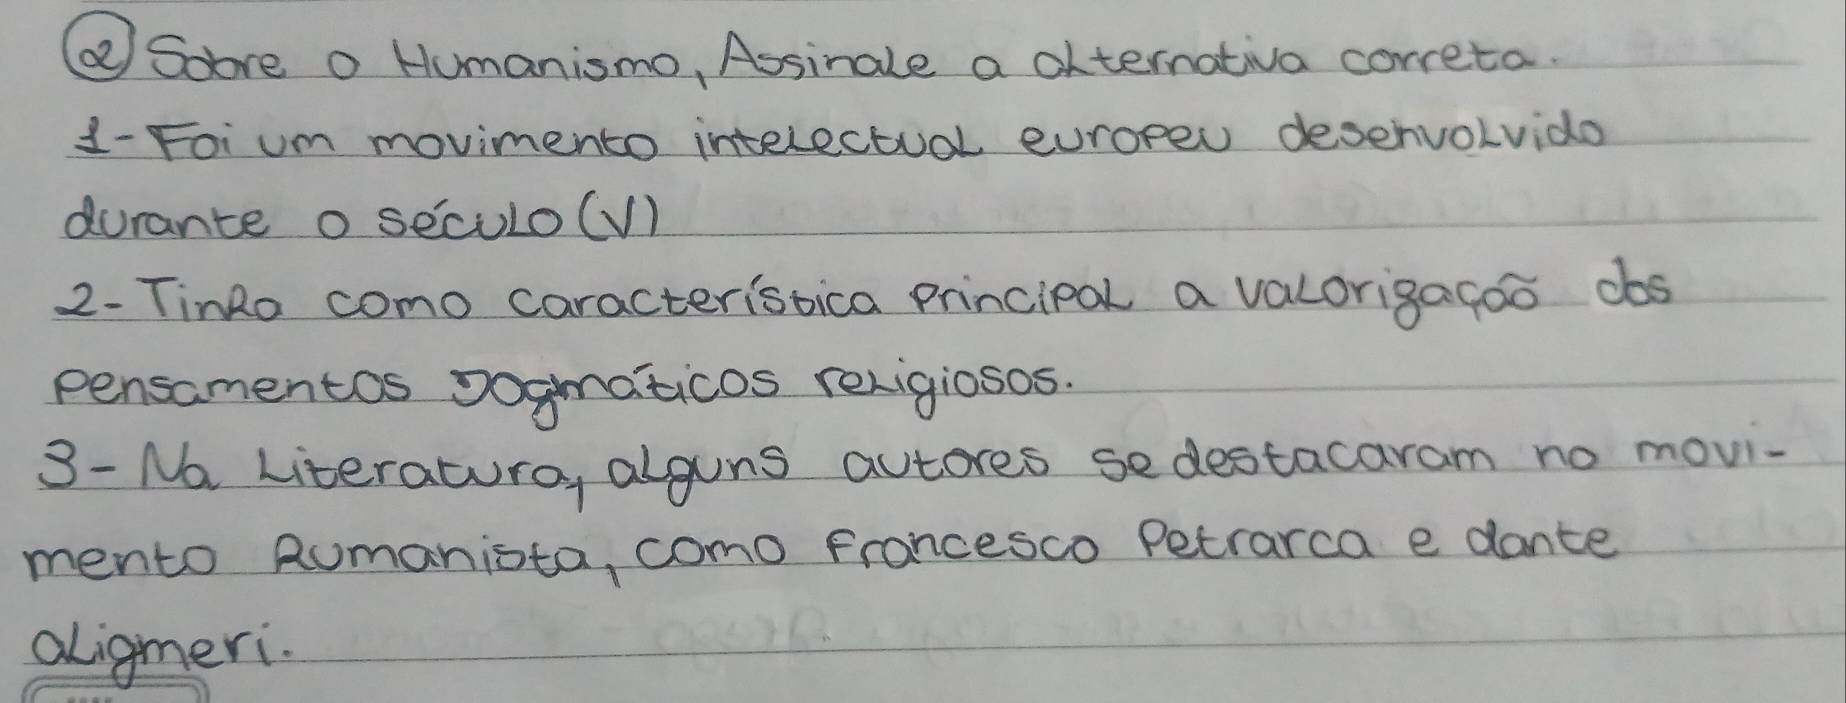 ② Sobre o Humanismo, Assinale a alternativa correta.
1- Foi um movimento intelectual europeu desenvolvido
durante o século (V)
2- Tinha como característica principal a valorização dos
pensamentos dogmáticos religiosos.
3- Na Literatura, alguns autores se destacaram no movi-
mento humanista, como Francesco Petrarca e dante
aligmeri.